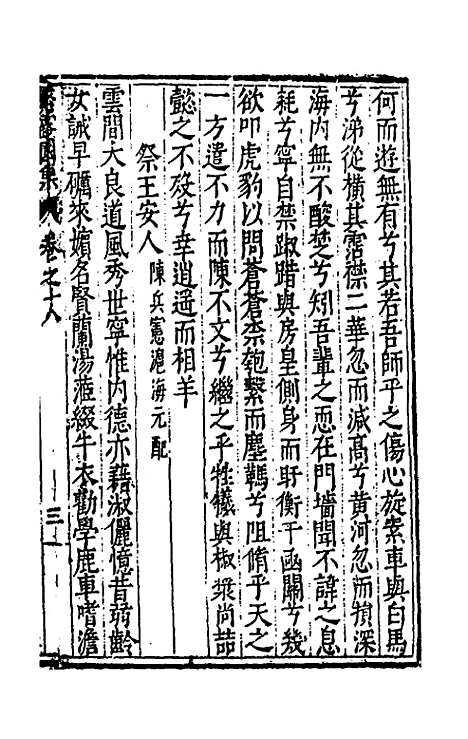 何而遊無有兮其若吾師乎之傷心旋素車與白馬
兮涕從橫其霑襟二華忽而減高兮黄河忽而損深
海内無不酸楚兮矧吾輩之忝在門墻聞不諱之息
耗兮寧自禁踧踖與房皇側身而盱衡乎函關兮幾
欲叩虎豹以問蒼蒼柰匏繫而塵鞿兮阻脩乎天之
一方遣不力而陳不文兮繼之乎牲儀與椒漿尚喆
懿之不歿兮幸逍遥而相羊
祭王安人陳兵憲滬海元配
雲間大良道風秀世寧惟内德亦藉淑儷憶昔弱齡
女誡早礪來嬪名賢蘭湯茝綴牛衣勸學鹿車嗜澹
集 卷之十八
三一